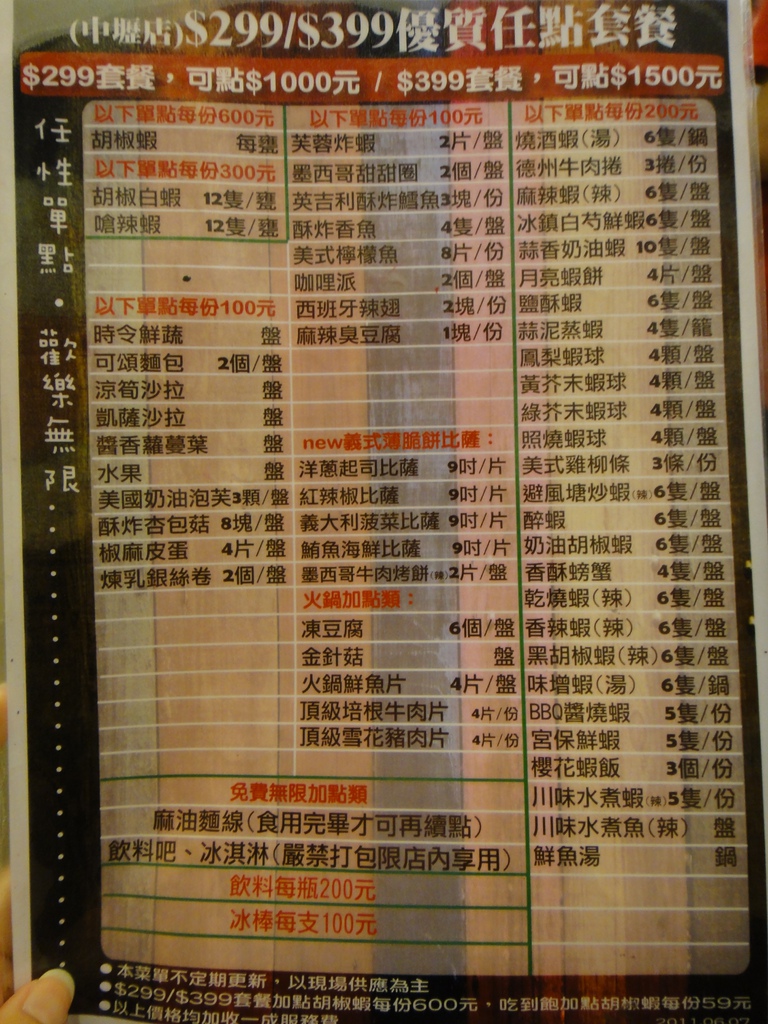 (中壢店)$299/$399優質任點套餐
$299套餐，可點$1000元 / $399套餐，可點$1500元
任性單點．歡樂無限
以下單點每份600元
胡椒蝦 每甕
以下單點每份300元
胡椒白蝦 12隻/甕
嗆辣蝦 12隻/甕
以下單點每份100元
時令鮮蔬 盤
可頌麵包 2個/盤
涼筍沙拉 盤
凱薩沙拉 盤
醬香蘿蔓葉 盤
水果 盤
美國奶油泡芙3顆/盤
酥炸杏包菇 8塊/盤
椒麻皮蛋 4片/盤
煉乳銀絲卷 2個/盤
以下單點每份100元
芙蓉炸蝦 2片/盤
墨西哥甜甜圈 2個/盤
英吉利酥炸鱈魚3塊/份
酥炸香魚 4隻/盤
美式檸檬魚 8片/份
咖哩派 2個/盤
西班牙辣翅 2塊/份
麻辣臭豆腐 1塊/份
new義式薄脆餅比薩：
洋蔥起司比薩 9吋/片
紅辣椒比薩 9吋/片
義大利菠菜比薩 9吋/片
鮪魚海鮮比薩 9吋/片
墨西哥牛肉烤餅(辣)2片/盤
火鍋加點類：
凍豆腐 6個/盤
金針菇 盤
火鍋鮮魚片 4片/盤
頂級培根牛肉片 4片/份
頂級雪花豬肉片 4片/份
以下單點每份200元
燒酒蝦(湯) 6隻/鍋
德州牛肉捲 3捲/份
麻辣蝦(辣) 6隻/盤
冰鎮白芍鮮蝦6隻/盤
蒜香奶油蝦 10隻/盤
月亮蝦餅 4片/盤
鹽酥蝦 6隻/盤
蒜泥蒸蝦 4隻/籠
鳳梨蝦球 4顆/盤
黃芥末蝦球 4顆/盤
綠芥末蝦球 4顆/盤
照燒蝦球 4顆/盤
美式雞柳條 3條/份
避風塘炒蝦(辣)6隻/盤
醉蝦 6隻/盤
奶油胡椒蝦 6隻/盤
香酥螃蟹 4隻/盤
乾燒蝦(辣) 6隻/盤
香辣蝦(辣) 6隻/盤
黑胡椒蝦(辣)6隻/盤
味增蝦(湯) 6隻/鍋
BBQ醬燒蝦 5隻/份
宮保鮮蝦 5隻/份
櫻花蝦飯 3個/份
川味水煮蝦(辣)5隻/份
川味水煮魚(辣) 盤
鮮魚湯 鍋
免費無限加點類
麻油麵線(食用完畢才可再續點)
飲料吧、冰淇淋(嚴禁打包限店內享用)
飲料每瓶200元
冰棒每支100元
●本菜單不定期更新，以現場供應為主
●$299/$399套餐加點胡椒蝦每份600元，吃到飽加點胡椒蝦每份59元
●以上價格均加收一成服務費
2011.06.07